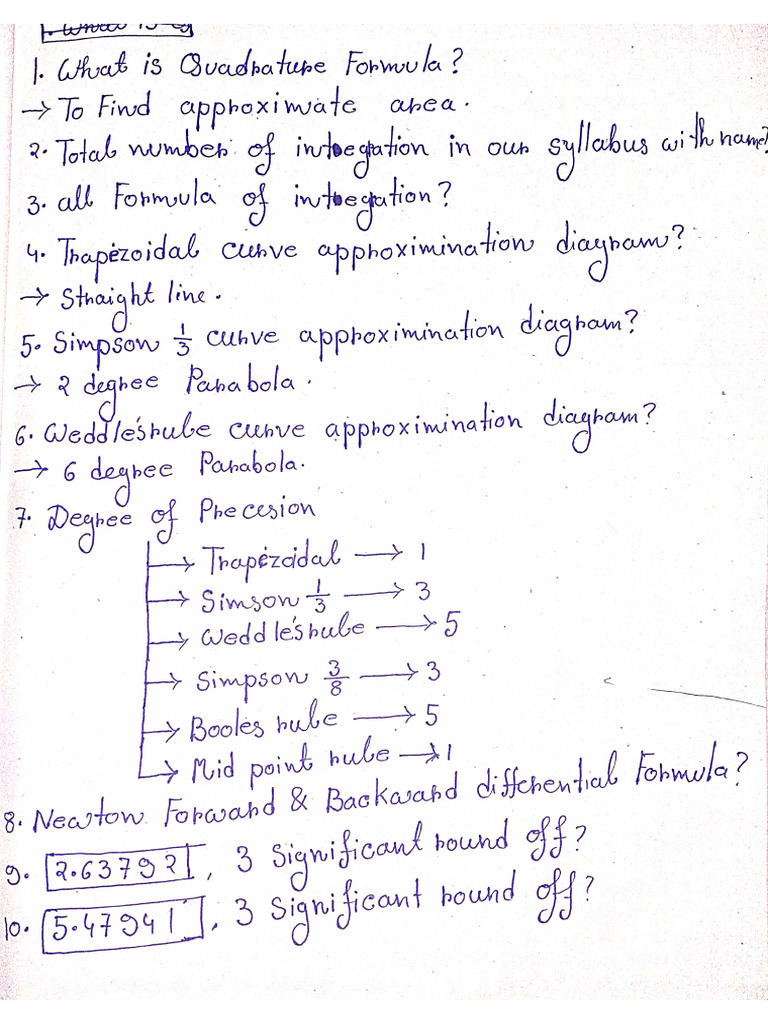 1. What is Quadrature Formula?
→ To Find approximate area.
2. Total number of intregration in our syllabus with name?
3. all Formula of intregation?
4. Trapezoidal curve approximination diagram?
→ Straight line.
5. Simpson 1/3 curve approximination diagram?
→ 2 degree Parabola.
6. Weddle's rule curve approximination diagram?
→ 6 degree Parabola.
7. Degree of Precesion
→ Trapezoidal → 1
→ Simson 1/3 → 3
→ Weddle's rule → 5
→ Simpson 3/8 → 3
→ Booles rule → 5
→ Mid point rule → 1
8. Newton Forward & Backward differential Formula?
9. 2.63792, 3 Significant round off?
10. 5.47941, 3 Significant round off?